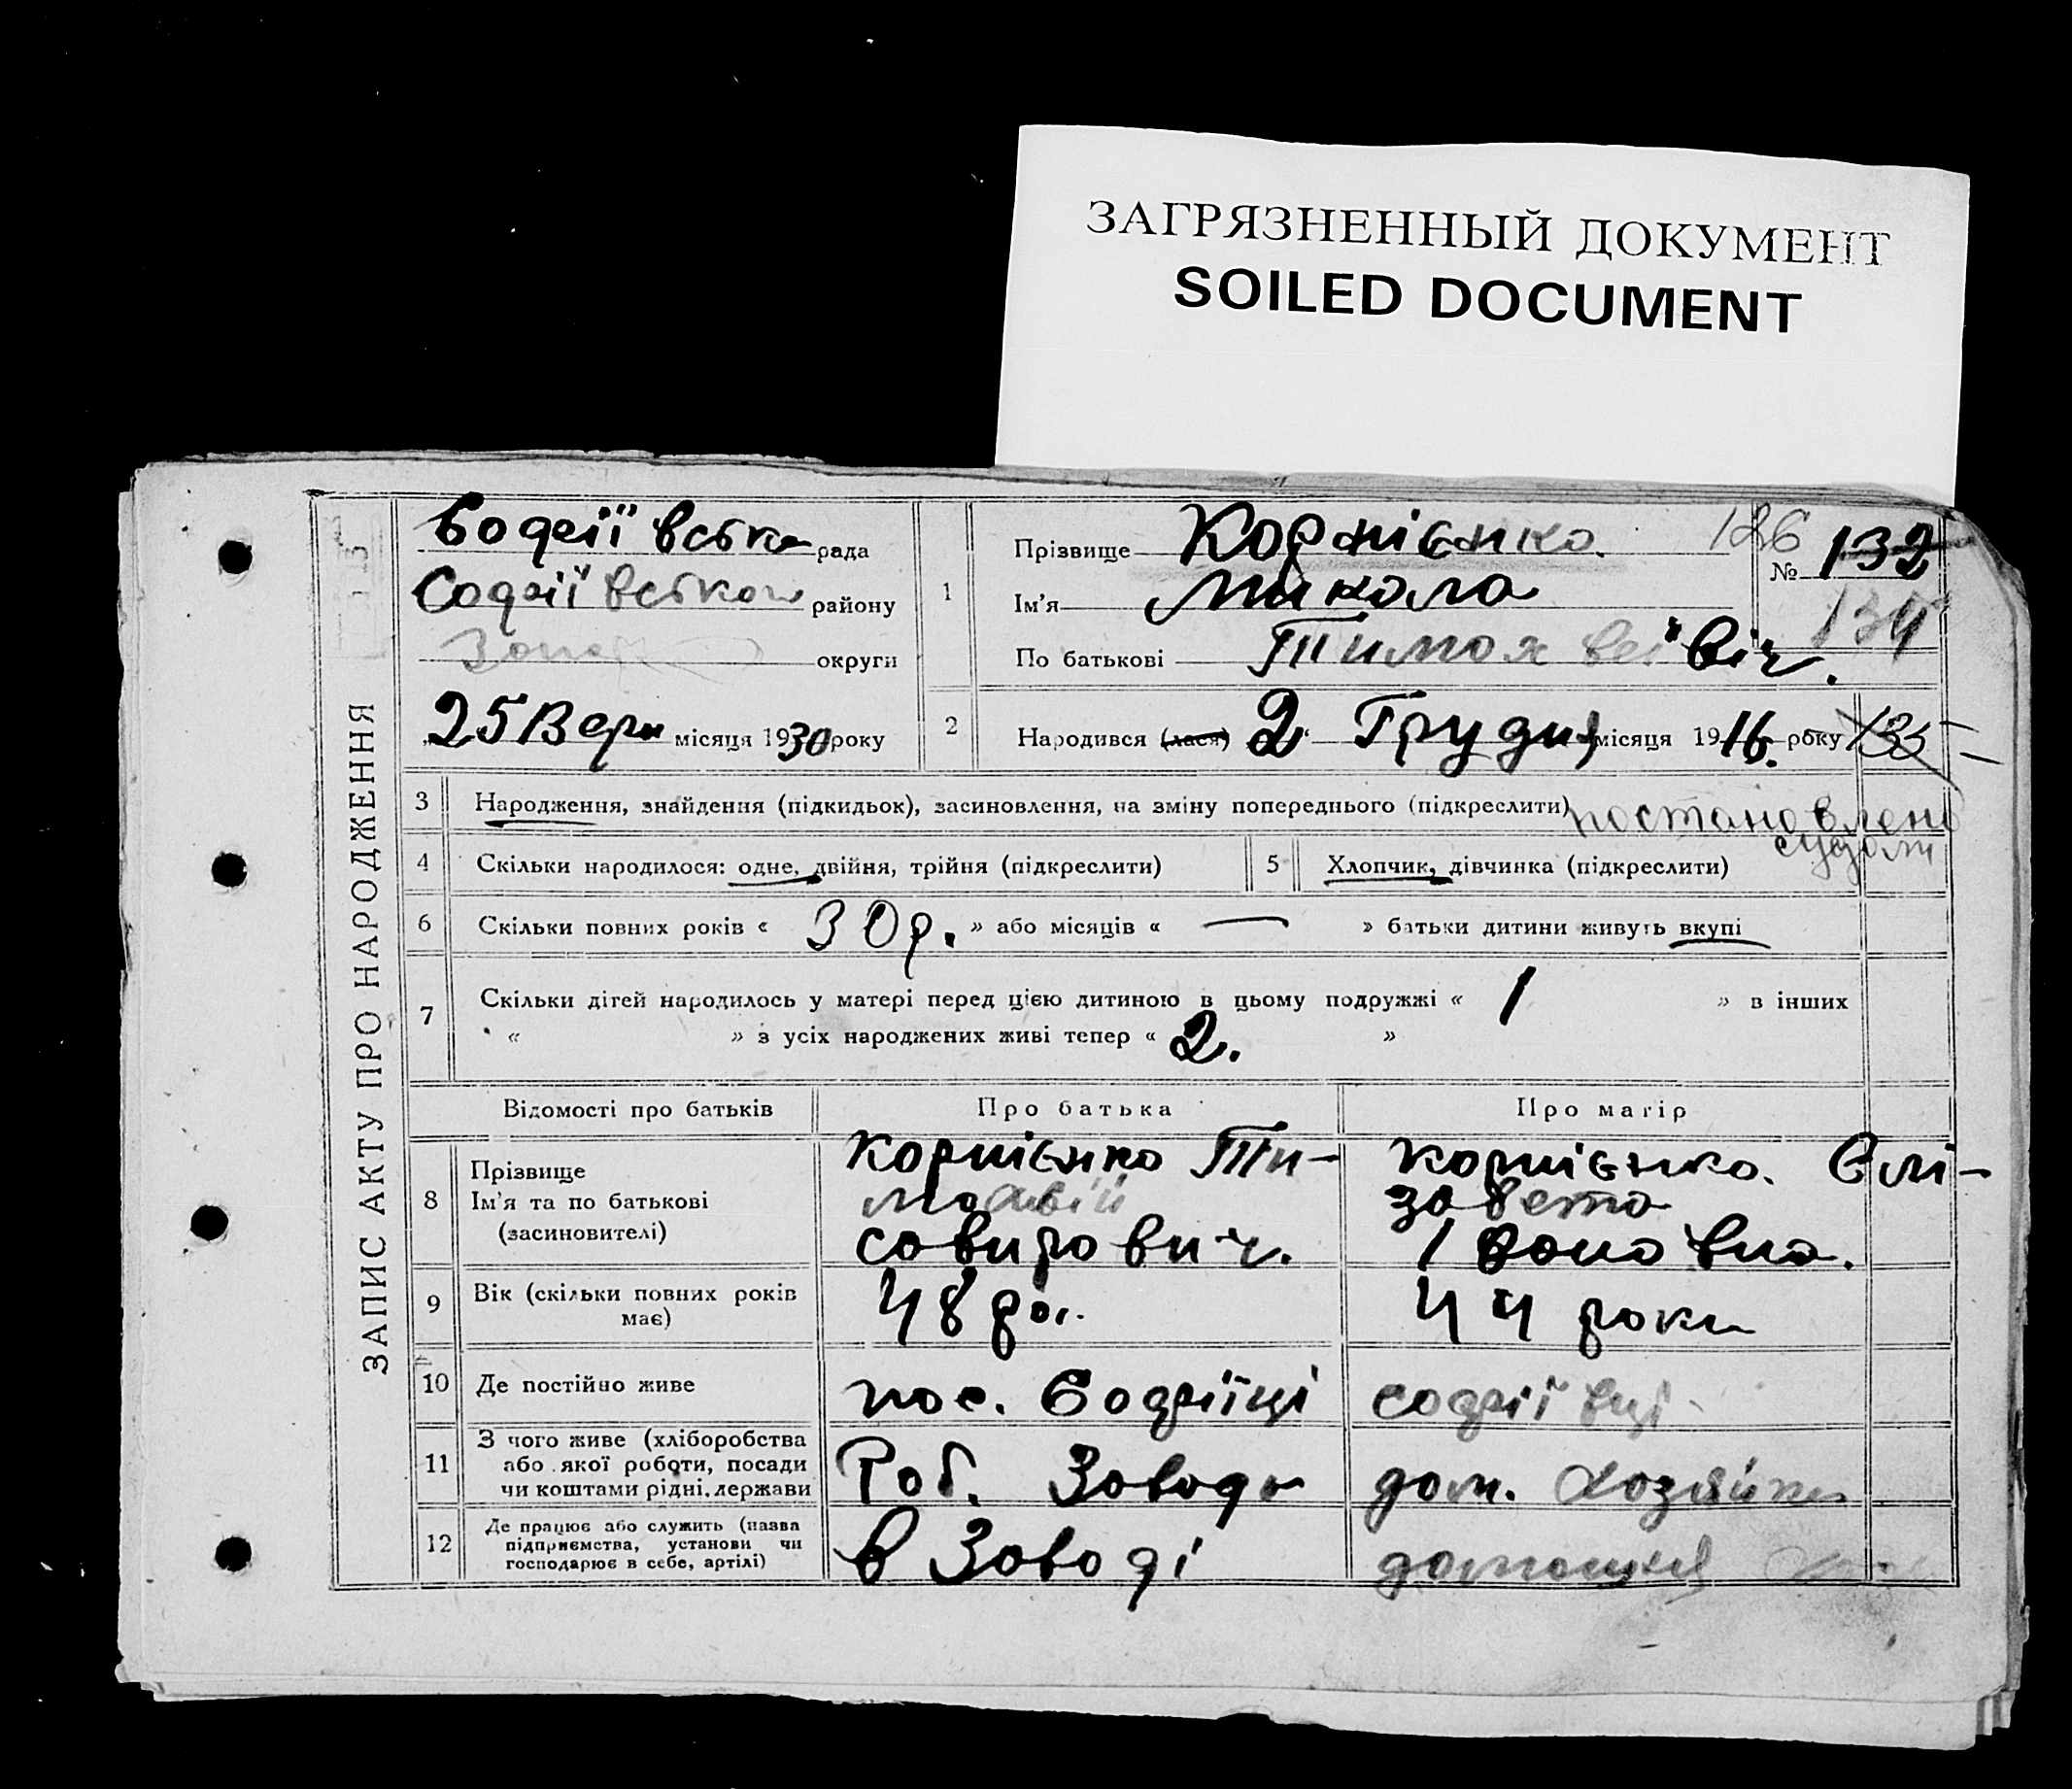 ЗАГРЯЗНЕННЫЙ ДОКУМЕНТ
SOILED DOCUMENT
ЗАПИС АКТУ ПРО НАРОДЖЕННЯ
рада
району
округи
25 Верн місяця 1930 року
1
Прізвище Корнієнко.
Ім'я Микола
По батькові
126
№ 132
134
2
Народився (лася) 2 Грудня місяця 1916. року
135
3 Народження, знайдення (підкидьок), засиновлення, на зміну попереднього (підкреслити) постановлено
судом
4 Скільки народилося: одне, двійня, трійня (підкреслити)
5 Хлопчик, дівчинка (підкреслити)
6 Скільки повних років « 30 р. » або місяців « — » батьки дитини живуть вкупі
7 Скільки дітей народилось у матері перед цією дитиною в цьому подружжі « 1 » в інших
« » з усіх народжених живі тепер « 2. »
Відомості про батьків Про батька Про матір
8 Прізвище
Ім'я та по батькові
(засиновителі)
Корнієнко Ти-
Корнієнко. Єлі-
завета
9 Вік (скільки повних років
має)
48 рок.
44 роки
10 Де постійно живе
пос.
11 З чого живе (хліборобства
або якої роботи, посади
чи коштами рідні, держави
Роб. Завода
дом. хозяйка
12 Де працює або служить (назва
підприємства, установи чи
господарює в себе, артілі)
в Заводі
домашня